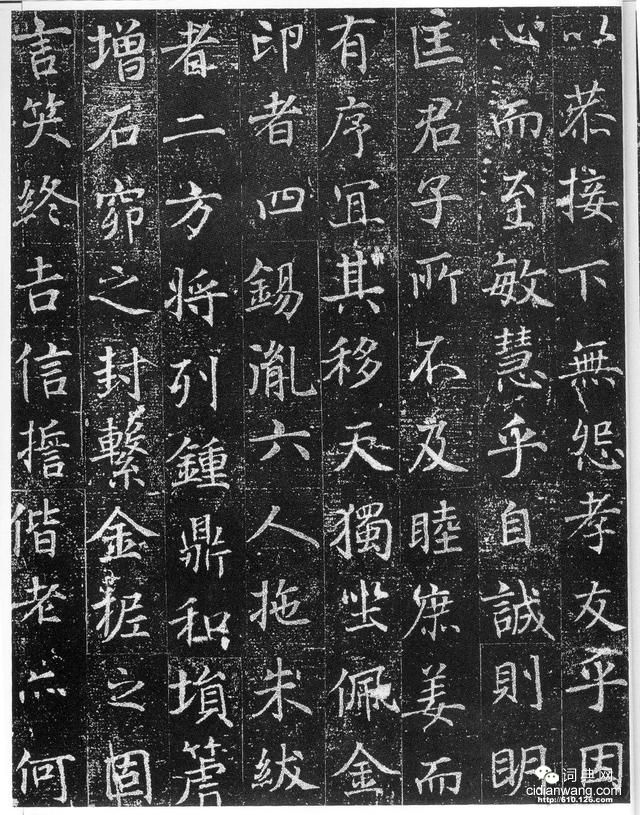 以恭接下無怨孝友乎因
心而至敏慧乎自誠則明
匡君子所不及睦庶姜而
有序冝其移天獨坐佩金
印者四錫胤六人拖朱紱
者二方将列鍾鼎和塤箎
增石窌之封繫金柅之固
言笑終吉信擔偕老亦何
词典网
cidianwang.com
http://610.126.com